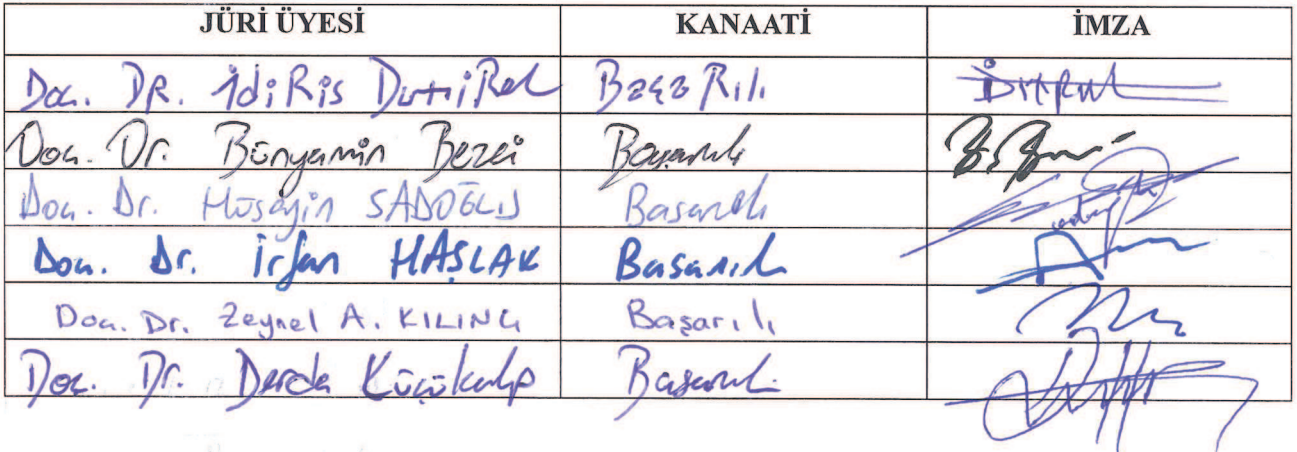 JÜRİ ÜYESİ KANAATİ İMZA
Doç. DR. İdiRis DemiRel BaşaRılı
Doç. Dr. Bünyamin Bezci Başarılı
Doç. Dr. Hüseyin SADOĞLU Başarılı
Doç. Dr. İrfan HAŞLAK Başarılı
Doç. Dr. Zeynel A. KILINÇ Başarılı
Doç. Dr. Derda Küçükalp Başarılı